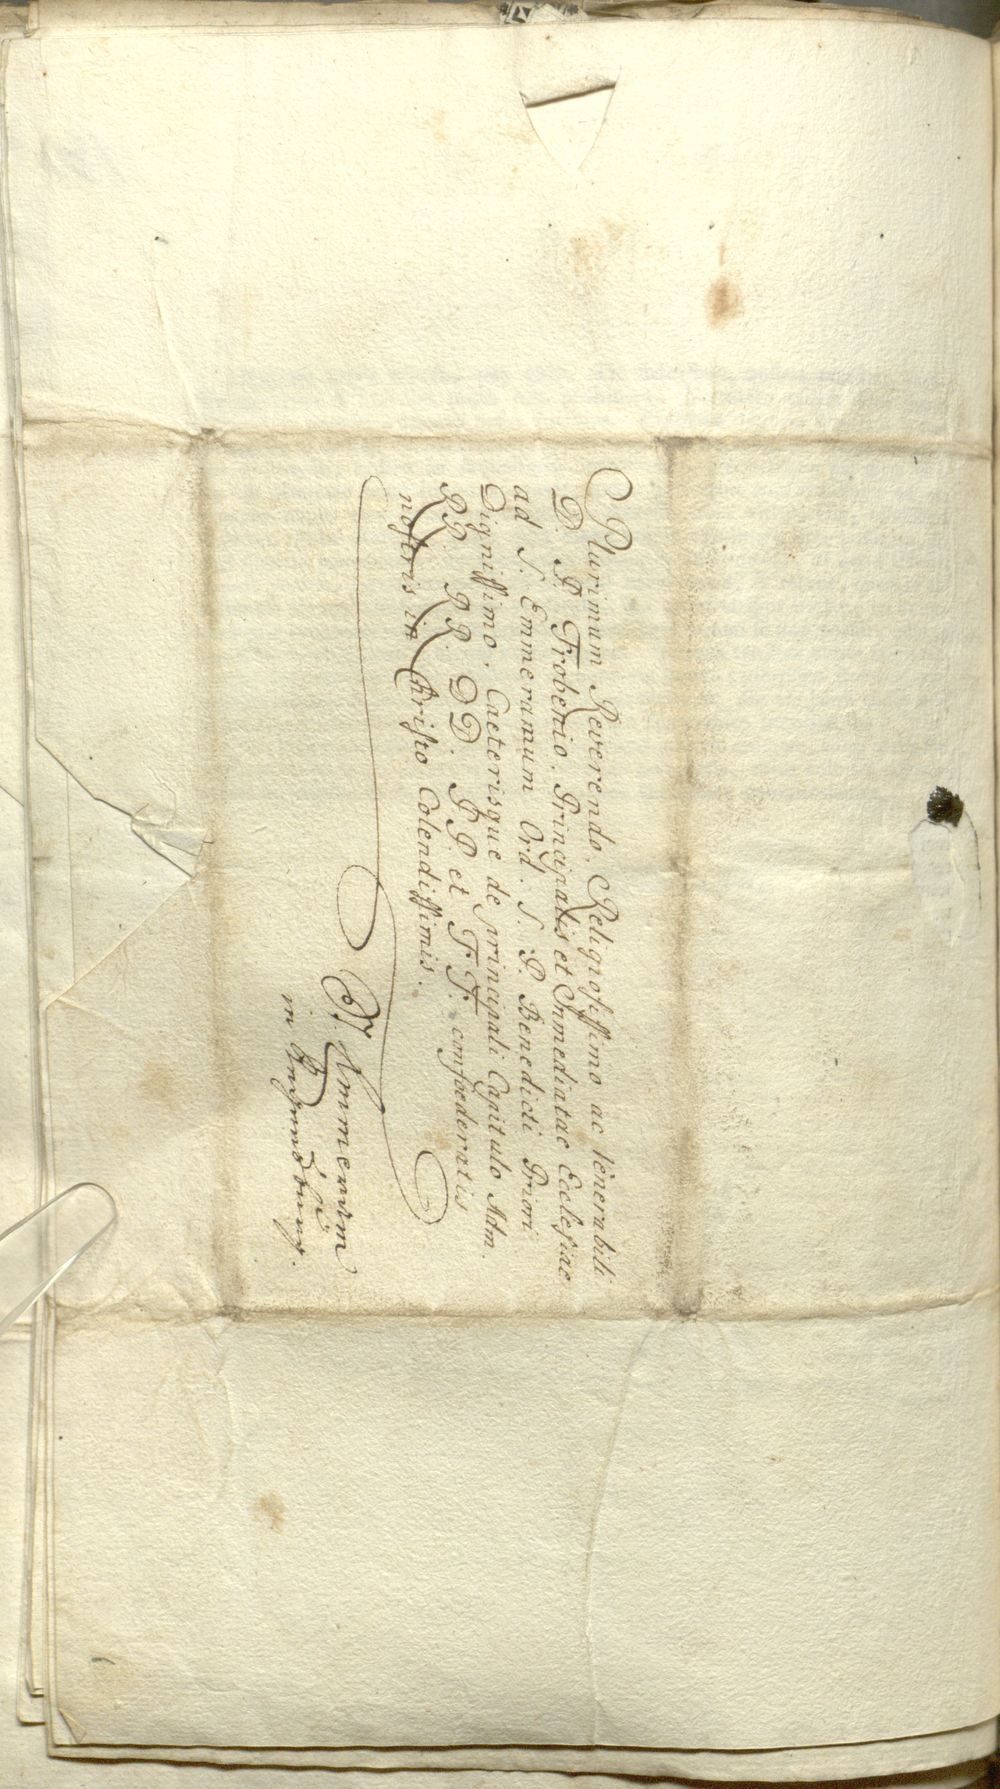 Plurimum Reverendo, Religiosissimo ac Venerabili
D. P. Frobenio, Principalis et Immediatae Ecclesiae
ad S. Emmeramum Ord. S. P. Benedicti Priori
Dignissimo, Caeterisque de Principali Capitulo Adm.
RR. RR. DD. PP. et FF. confoederatis
nostris in Christo Colendissimis.
St. Emmeram
in